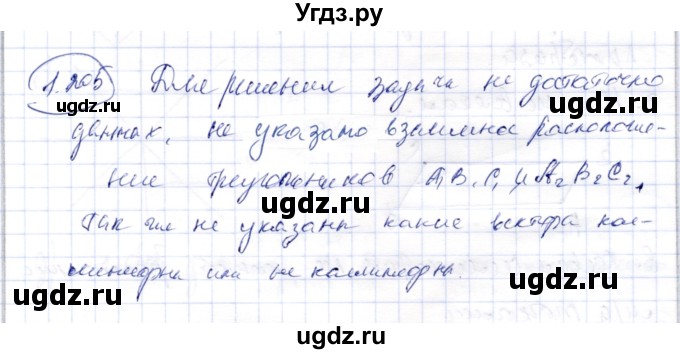 Угдз.ру
1.205 Для решения задачи не достаточно
данных, не указано взаимное расположе-
ние треугольников A1B1C1 и A2B2C2,
так же не указаны какие вектора кол-
линеарны или не коллинеарны.
ugdz.ru
ugdz.ru
ugdz.ru
ugdz.ru
ugdz.ru
ugdz.ru
ugdz.ru